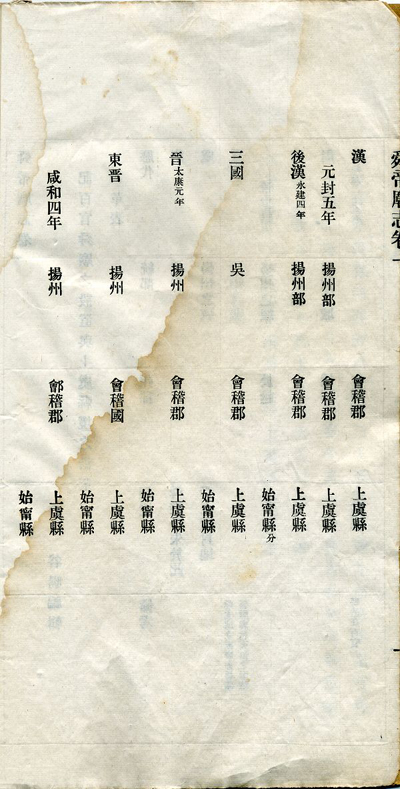 舜帝廟志卷一
漢 會稽郡 上虞縣
元封五年 揚州部 會稽郡 上虞縣
後漢永建四年 揚州部 會稽郡 上虞縣
始甯縣分
三國 吳 會稽郡 上虞縣
始甯縣
晉太康元年 揚州 會稽郡 上虞縣
始甯縣
東晉 揚州 會稽國 上虞縣
始甯縣
咸和四年 揚州 鄶稽郡 上虞縣
始甯縣